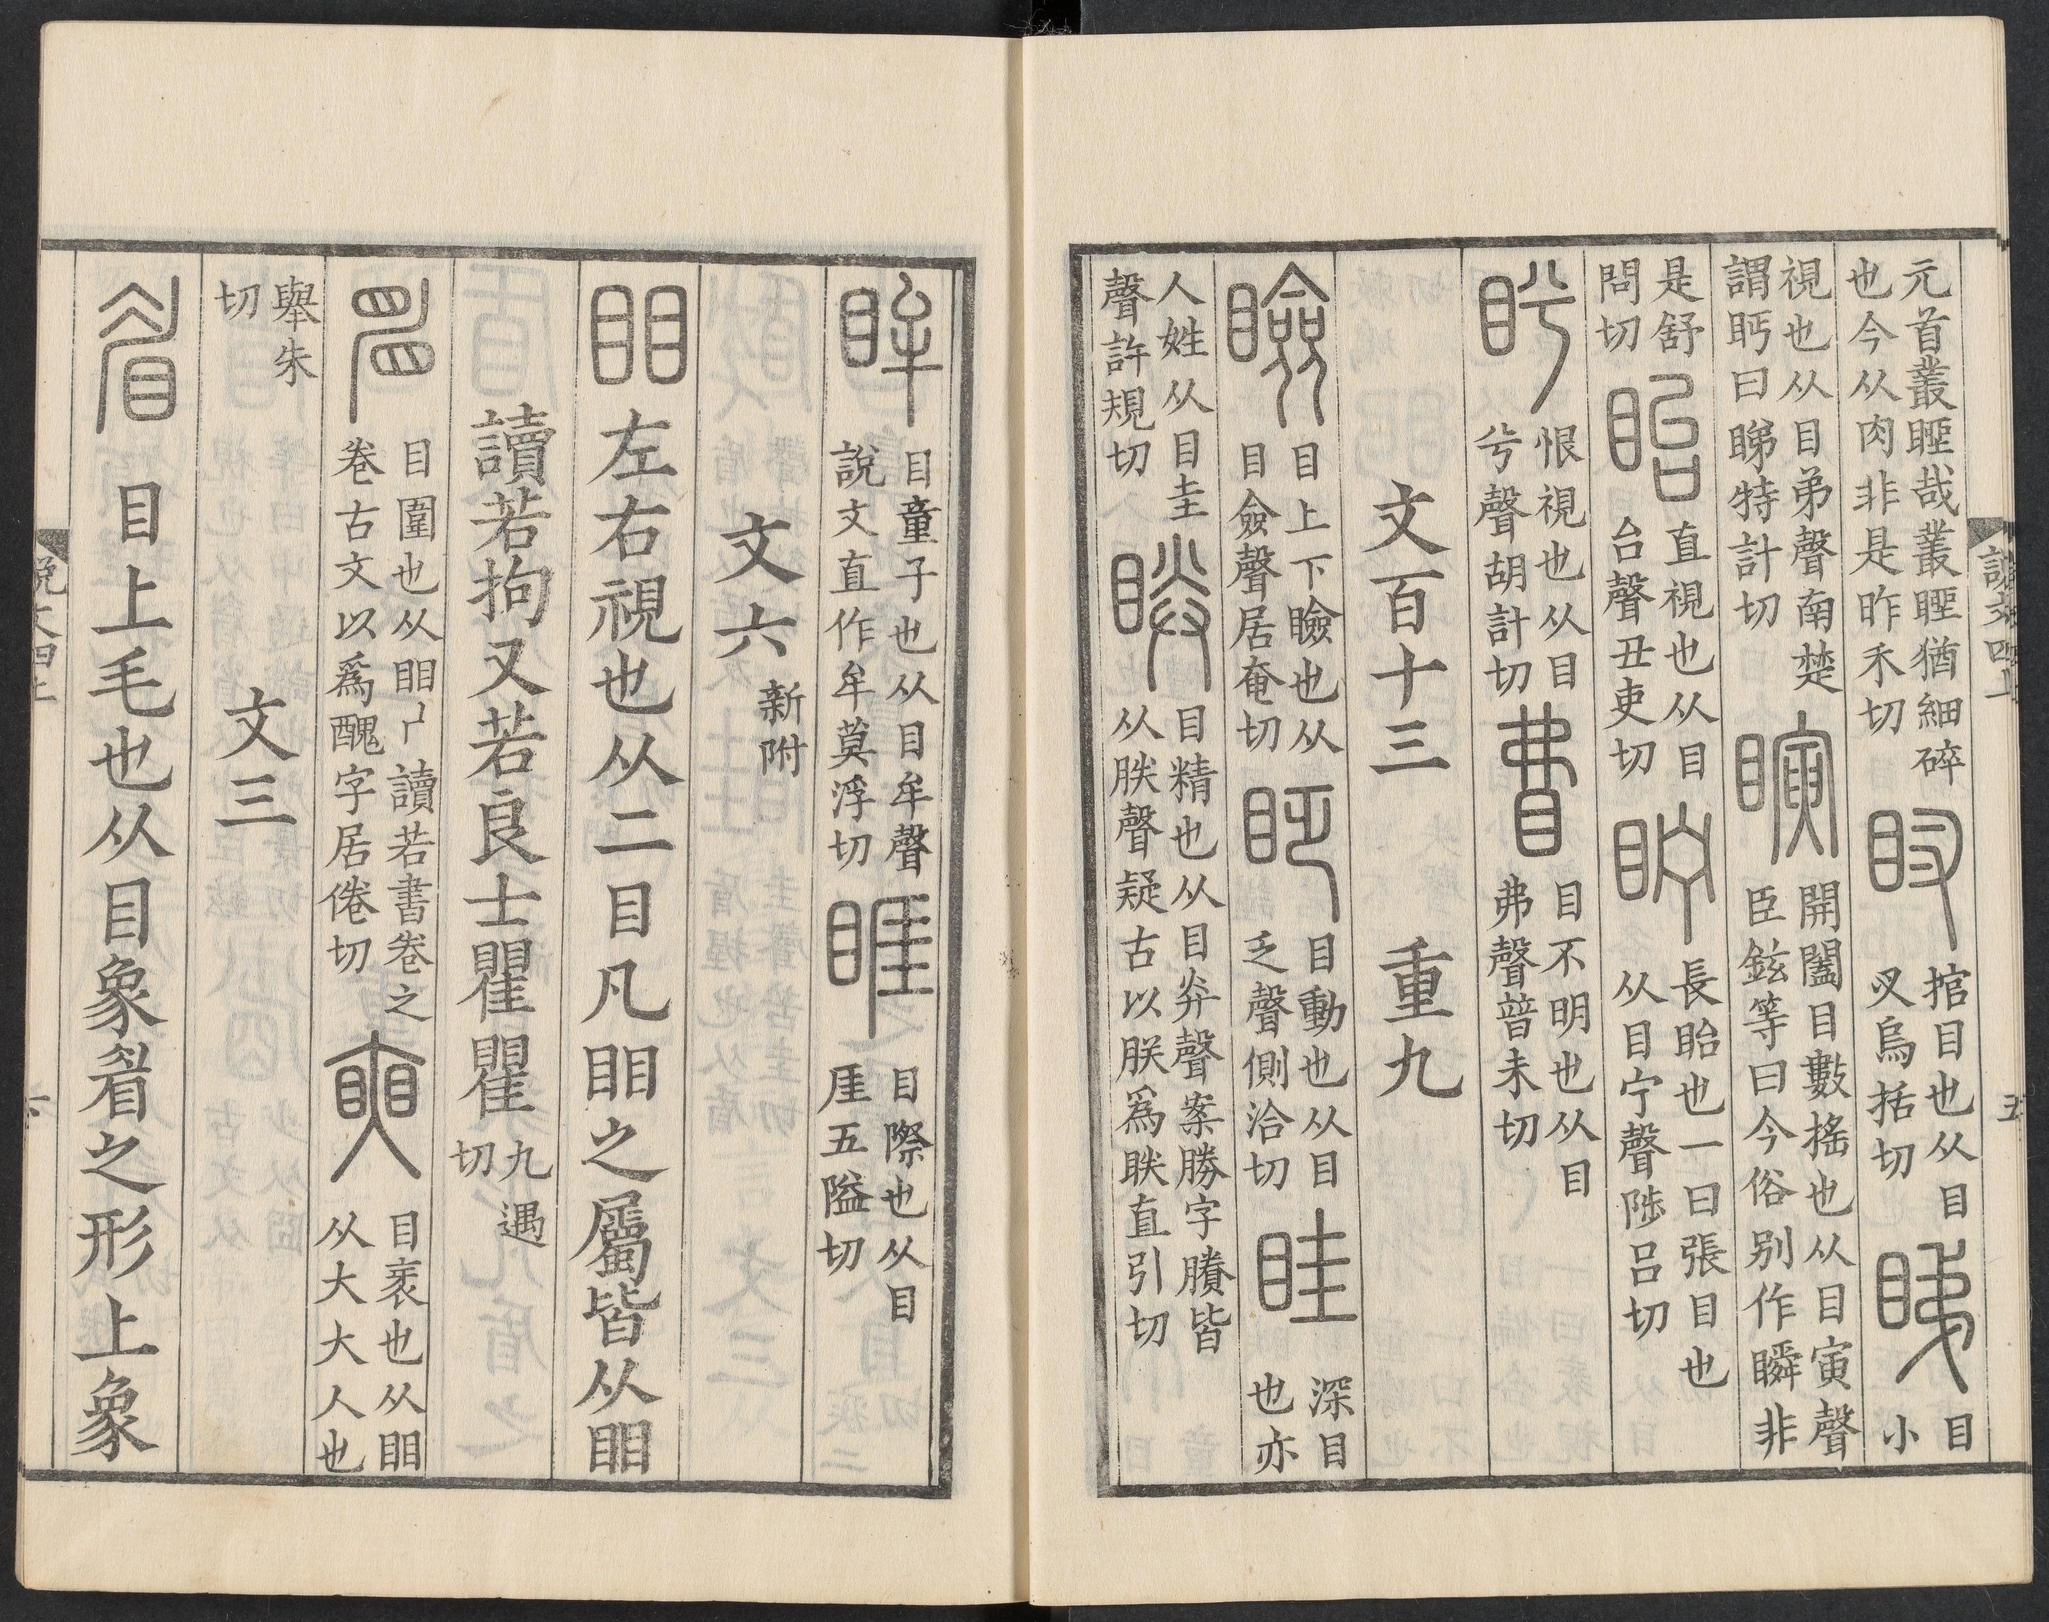 元首叢脞哉叢脞猶細碎
也今从肉非是昨禾切
掐目也从目
叉烏括切
目
小
視也从目弟聲南楚
謂眄曰睇特計切
開闔目數搖也从目寅聲
臣鉉等曰今俗别作瞬非
是舒
問切
直視也从目
台聲丑吏切
長眙也一曰張目也
从目宁聲陟呂切
恨視也从目
兮聲胡計切
目不明也从目
弗聲普未切
文百十三 重九
目上下瞼也从
目僉聲居奄切
目動也从目
乏聲側洽切
深目
也亦
人姓从目圭
聲許規切
目精也从目灷聲案勝字賸皆
从朕聲疑古以朕爲眹直引切
說文四上
五
目童子也从目牟聲
說文直作牟莫浮切
目際也从目
厓五隘切
文六 新附
䀠 左右視也从二目凡䀠之屬皆从䀠
讀若拘又若良士瞿瞿 九遇
切
目圍也从䀠𠂆讀若書卷之
卷古文以爲醜字居倦切
目衺也从䀠
从大大人也
舉朱
切
文三
目上毛也从目象眉之形上象
說文四上
六